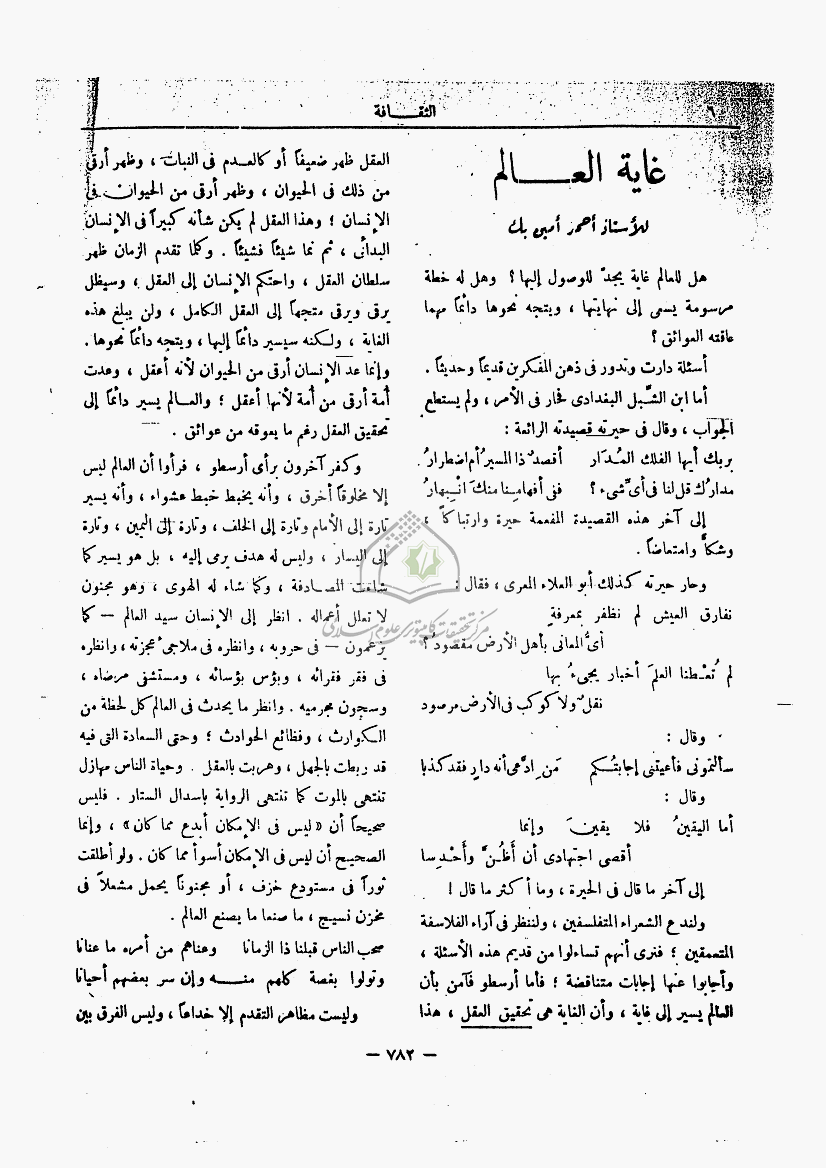 ٦
الثقـافة
غاية العـــالم
للأستاذ أحمد أمين بك
هل للعالم غاية يجدّ للوصول إليها؟ وهل له خطة
مرسومة يسعى إلى نهايتها، ويتجه نحوها دائماً مهما
عاقته العوائق؟
أسئلة دارت وتدور فى ذهن المفكرين قديماً وحديثاً.
أما ابن الشِّبل البغدادى فحار فى الأمر، ولم يستطع
الجواب، وقال فى حيرته قصيدته الرائعة:
بربك أيها الفلك المُدَار أقصدٌ ذا المسيرُ أم اضطرارُ
مدارُك قل لنا فى أىّ شىء؟ ففى أفهامِنا منك انبِهارُ
إلى آخر هذه القصيدة المفعمة حيرة وارتباكاً،
وشكاً وامتعاضاً.
وحار حيرته كذلك أبو العلاء المعرى، فقال:
نفارق العيش لم نظفر بمعرفةٍ
أىُّ المعانى بأهل الأرض مقصودُ؟
لم تُعطنا العلمَ أخبار يجىءُ بها
نقلٌ ولا كوكب فى الأرض مرصود
وقال:
سألتمونى فأعيتنى إجابتُكم مَن ادّعى أنه دارٍ فقد كذبا
وقال:
أما اليقينُ فلا يقينَ وإنما
أقصى اجتهادى أن أظُنَّ وأحْدِسا
إلى آخر ما قال فى الحيرة، وما أكثر ما قال!
ولندع الشعراء المتفلسفين، ولننظر فى آراء الفلاسفة
المتعمقين؛ فنرى أنهم تساءلوا من قديم هذه الأسئلة،
وأجابوا عنها إجابات متناقضة؛ فأما أرسطو فآمن بأن
العالم يسير إلى غاية، وأن الغاية هى تحقيق العقل، هذا
العقل ظهر ضعيفاً أو كالعدم فى النبات، وظهر أرقى
من ذلك فى الحيوان، وظهر أرقى من الحيوان فى
الإنسان؛ وهذا العقل لم يكن شأنه كبيراً فى الإنسان
البدائى، ثم نما شيئاً فشيئاً. وكلما تقدم الزمان ظهر
سلطان العقل، واحتكم الإنسان إلى العقل؛ وسيظل
يرقى ويرقى متجهاً إلى العقل الكامل، ولن يبلغ هذه
الغاية، ولكنه سيسير دائماً إليها، ويتجه دائماً نحوها.
وإنما عد الإنسان أرقى من الحيوان لأنه أعقل، وعدت
أمة أرقى من أمة لأنها أعقل؛ والعـالم يسير دائماً إلى
تحقيق العقل رغم ما يعوقه من عوائق.
وكفر آخرون برأى أرسطو، فرأوا أن العالم ليس
إلا مخلوقاً أخرق، وأنه يخبط خبط عشواء، وأنه يسير
تارة إلى الأمام وتارة إلى الخلف، وتارة إلى اليمين، وتارة
إلى اليسار، وليس له هدف يرمى إليه، بل هو يسير كما
شاءت المصادفة، وكما شاء له الهوى، وهو مجنون
لا تعلل أعماله. انظر إلى الإنسان سيد العالم — كما
يزعمون — فى حروبه، وانظره فى ملاجئ عجزته، وانظره
فى فقر فقرائه، وبؤس بؤسائه، ومستشفى مرضاه،
وسجون مجرميه. وانظر ما يحدث فى العالم كل لحظة من
الكوارث، وفظائع الحوادث؛ وحتى السعادة التى فيه
قد ربطت بالجهل، وهربت بالعقل. وحياة الناس مهازل
تنتهى بالموت كما تنتهى الرواية بإسدال الستار. فليس
صحيحاً أن «ليس فى الإمكان أبدع مما كان»، وإنما
الصحيح أن ليس فى الإمكان أسوأ مما كان. ولو أطلقت
ثوراً فى مستودع خزف، أو مجنوناً يحمل مشعلاً فى
مخزن نسيج، ما صنعا ما يصنع العالم.
صحب الناس قبلنا ذا الزمانا وعناهم من أمره ما عنانا
وتولوا بغصة كلهم منـه وإن سر بعضهم أحيانا
وليست مظاهر التقدم إلا خداعاً، وليس الفرق بين
— ٧٨٢ —
مركز تحقيقات كامپيوترى علوم اسلامى